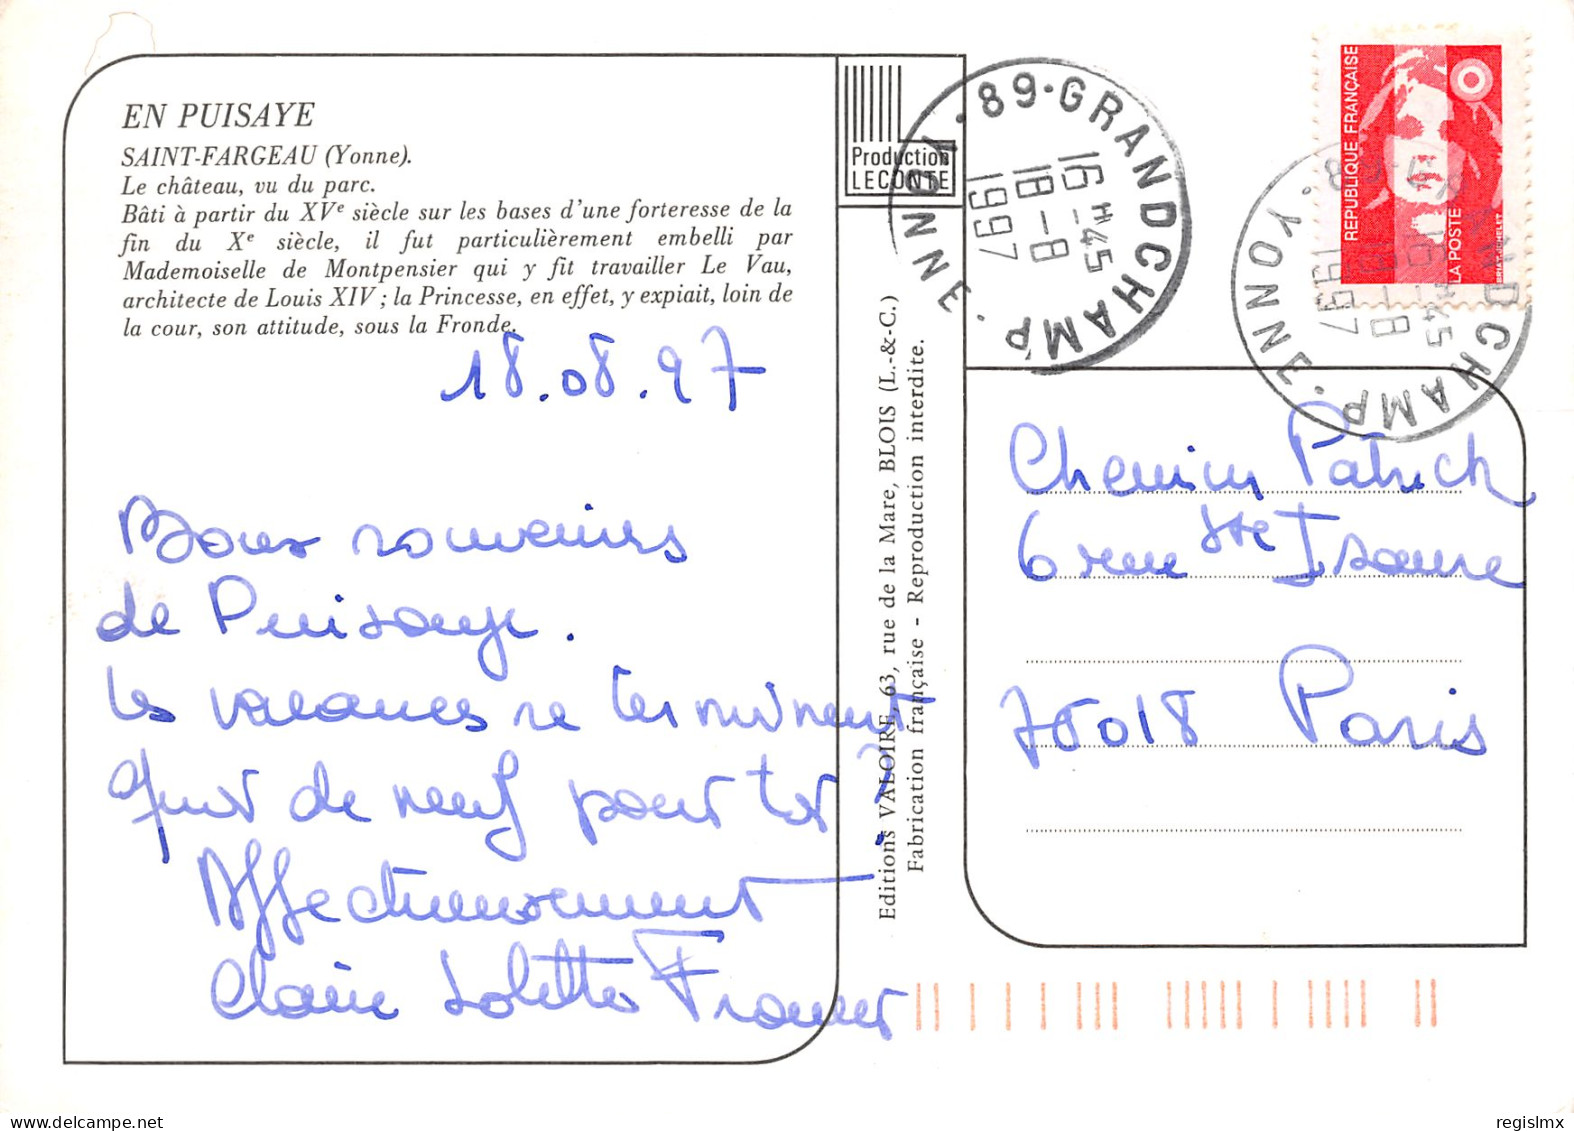 EN PUISAYE
SAINT-FARGEAU (Yonne).
Le château, vu du parc.
Bâti à partir du XVe siècle sur les bases d'une forteresse de la
fin du Xe siècle, il fut particulièrement embelli par
Mademoiselle de Montpensier qui y fit travailler Le Vau,
architecte de Louis XIV ; la Princesse, en effet, y expiait, loin de
la cour, son attitude, sous la Fronde.
18.08.97
Doux souvenirs
de Puisaye.
Les vacances se terminent
Quoi de neuf pour toi ?
Affectueusement
Claire Lolotte
Production
LECONTE
Editions VALOIRE, 63, rue de la Mare, BLOIS (L.-&-C.)
Fabrication française - Reproduction interdite.
89-GRANDCHAMP. YONNE.
16 H 45
18-8
1997
REPUBLIQUE FRANÇAISE
LA POSTE
GRANDCHAMP. YONNE.
16 H 45
18-8
1997
Chemin Patrick
6 rue Ste Isaure
75018 Paris
regislmx